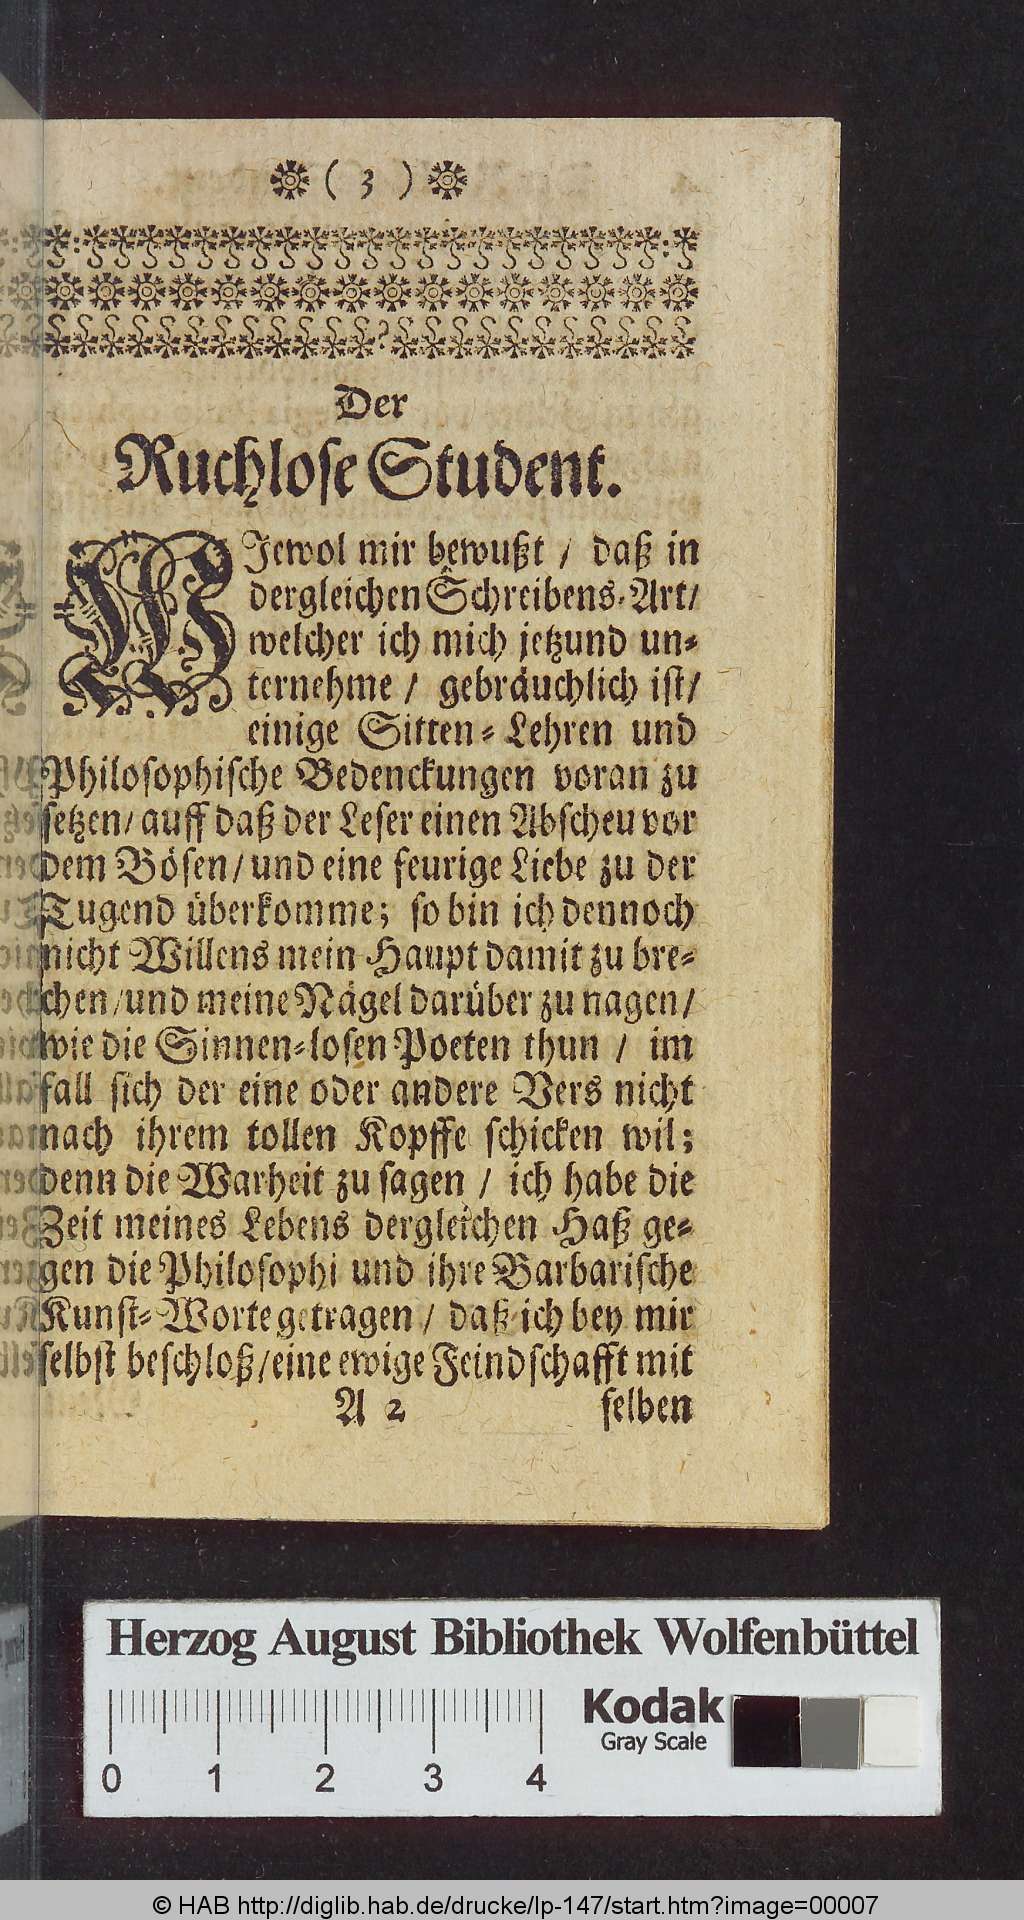 ( 3 )
Der
Ruchlose Student.
WJewol mir bewußt / daß in
dergleichen Schreibens-Art/
welcher ich mich jetzund un-
ternehme / gebräuchlich ist/
einige Sitten-Lehren und
Philosophische Bedenckungen voran zu
setzen/ auff daß der Leser einen Abscheu vor
dem Bösen/ und eine feurige Liebe zu der
Tugend überkomme; so bin ich dennoch
nicht Willens mein Haupt damit zu bre-
chen/und meine Nägel darüber zu nagen/
wie die Sinnen-losen Poeten thun / im
fall sich der eine oder andere Vers nicht
nach ihrem tollen Kopffe schicken wil;
denn die Warheit zu sagen / ich habe die
Zeit meines Lebens dergleichen Haß ge-
gen die Philosophi und ihre Barbarische
Kunst-Worte getragen / daß ich bey mir
selbst beschloß/eine ewige Feindschafft mit
A 2 selben
Herzog August Bibliothek Wolfenbüttel
Kodak
Gray Scale
0 1 2 3 4
© HAB http://diglib.hab.de/drucke/lp-147/start.htm?image=00007